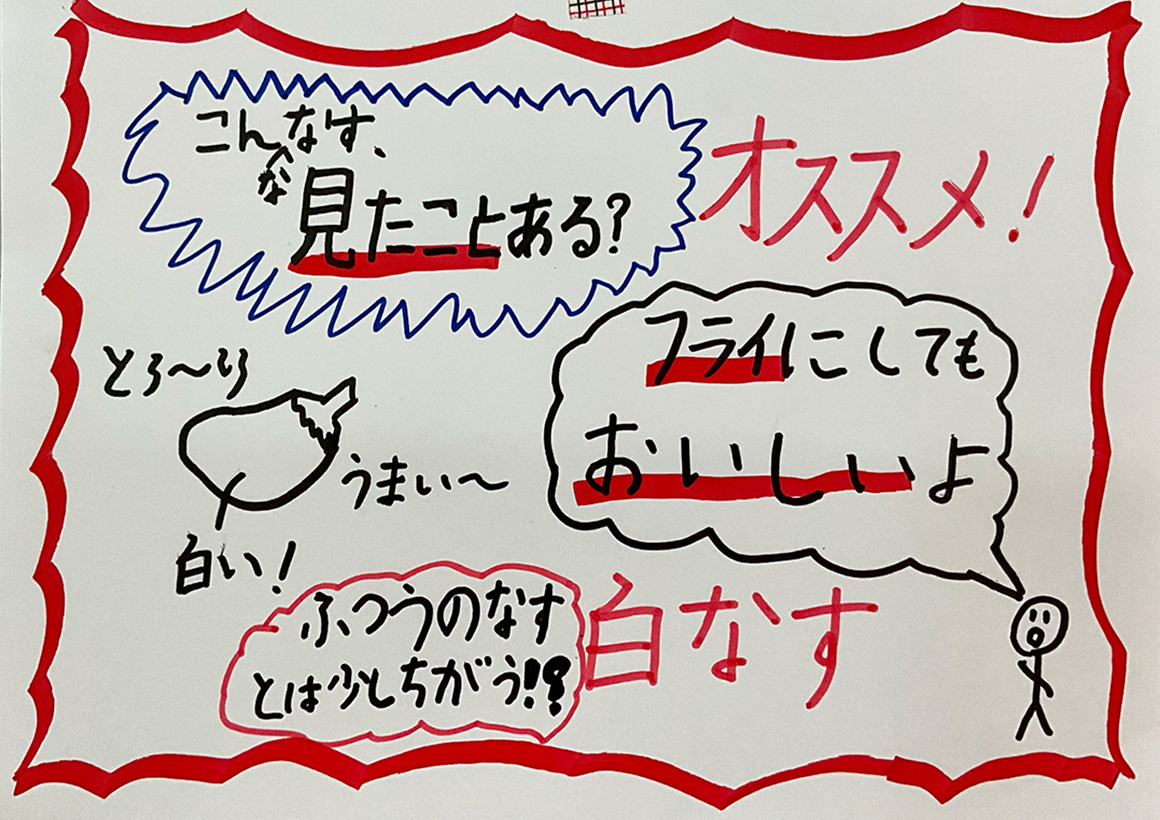 こんななす、
見たことある?
オススメ!
フライにしても
おいしいよ
とろ〜り
うまい〜
白い!
ふつうのなす
とは少しちがう!?
白なす